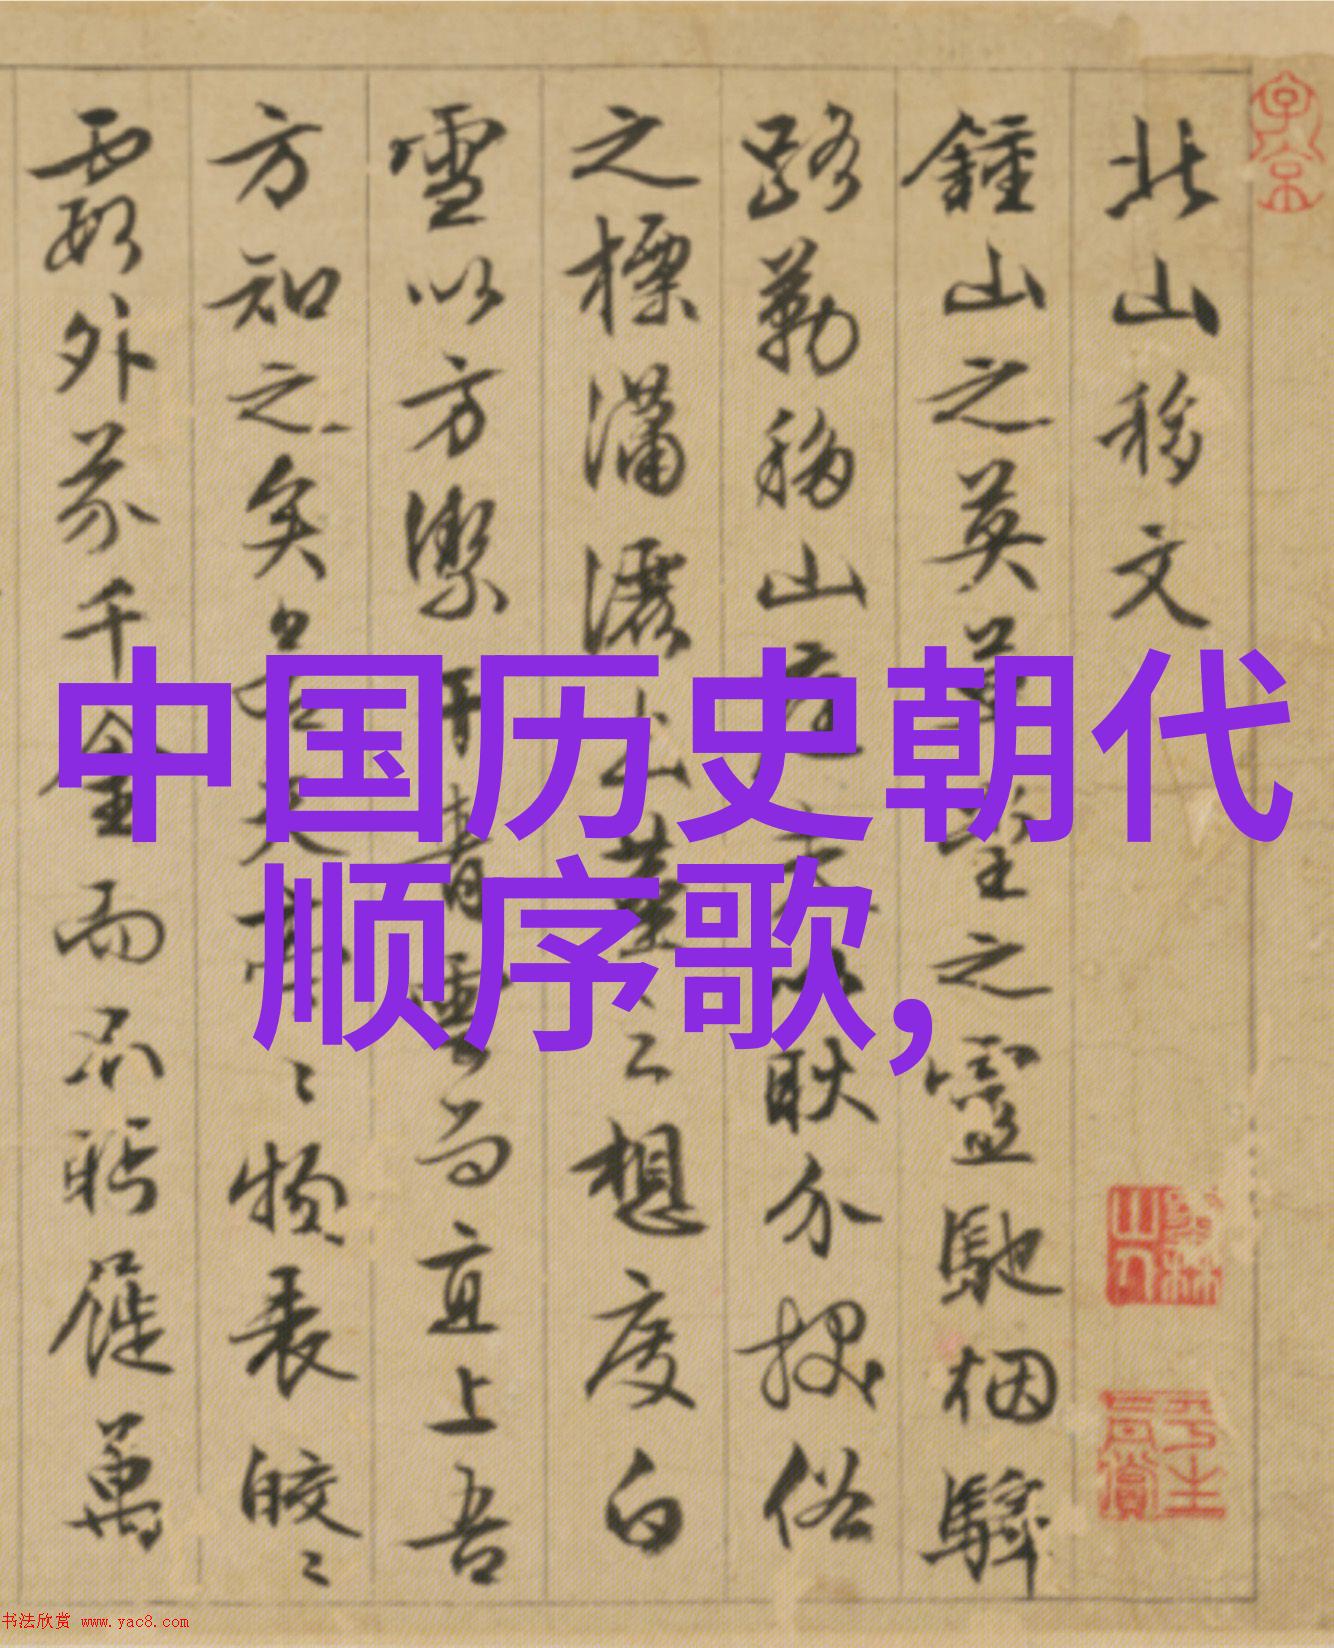 中国历史朝代
顺序歌,
北山移文
鍾山之英草堂之靈馳烟驛
路勒移山庭夫以耿介拔俗
之標瀟灑出塵之想度白
雪以方潔干青雲而直上吾
方知之矣亭〻物表皎〻
霞外芥千金而不眄屣萬
书法欣赏 www.yac8.com